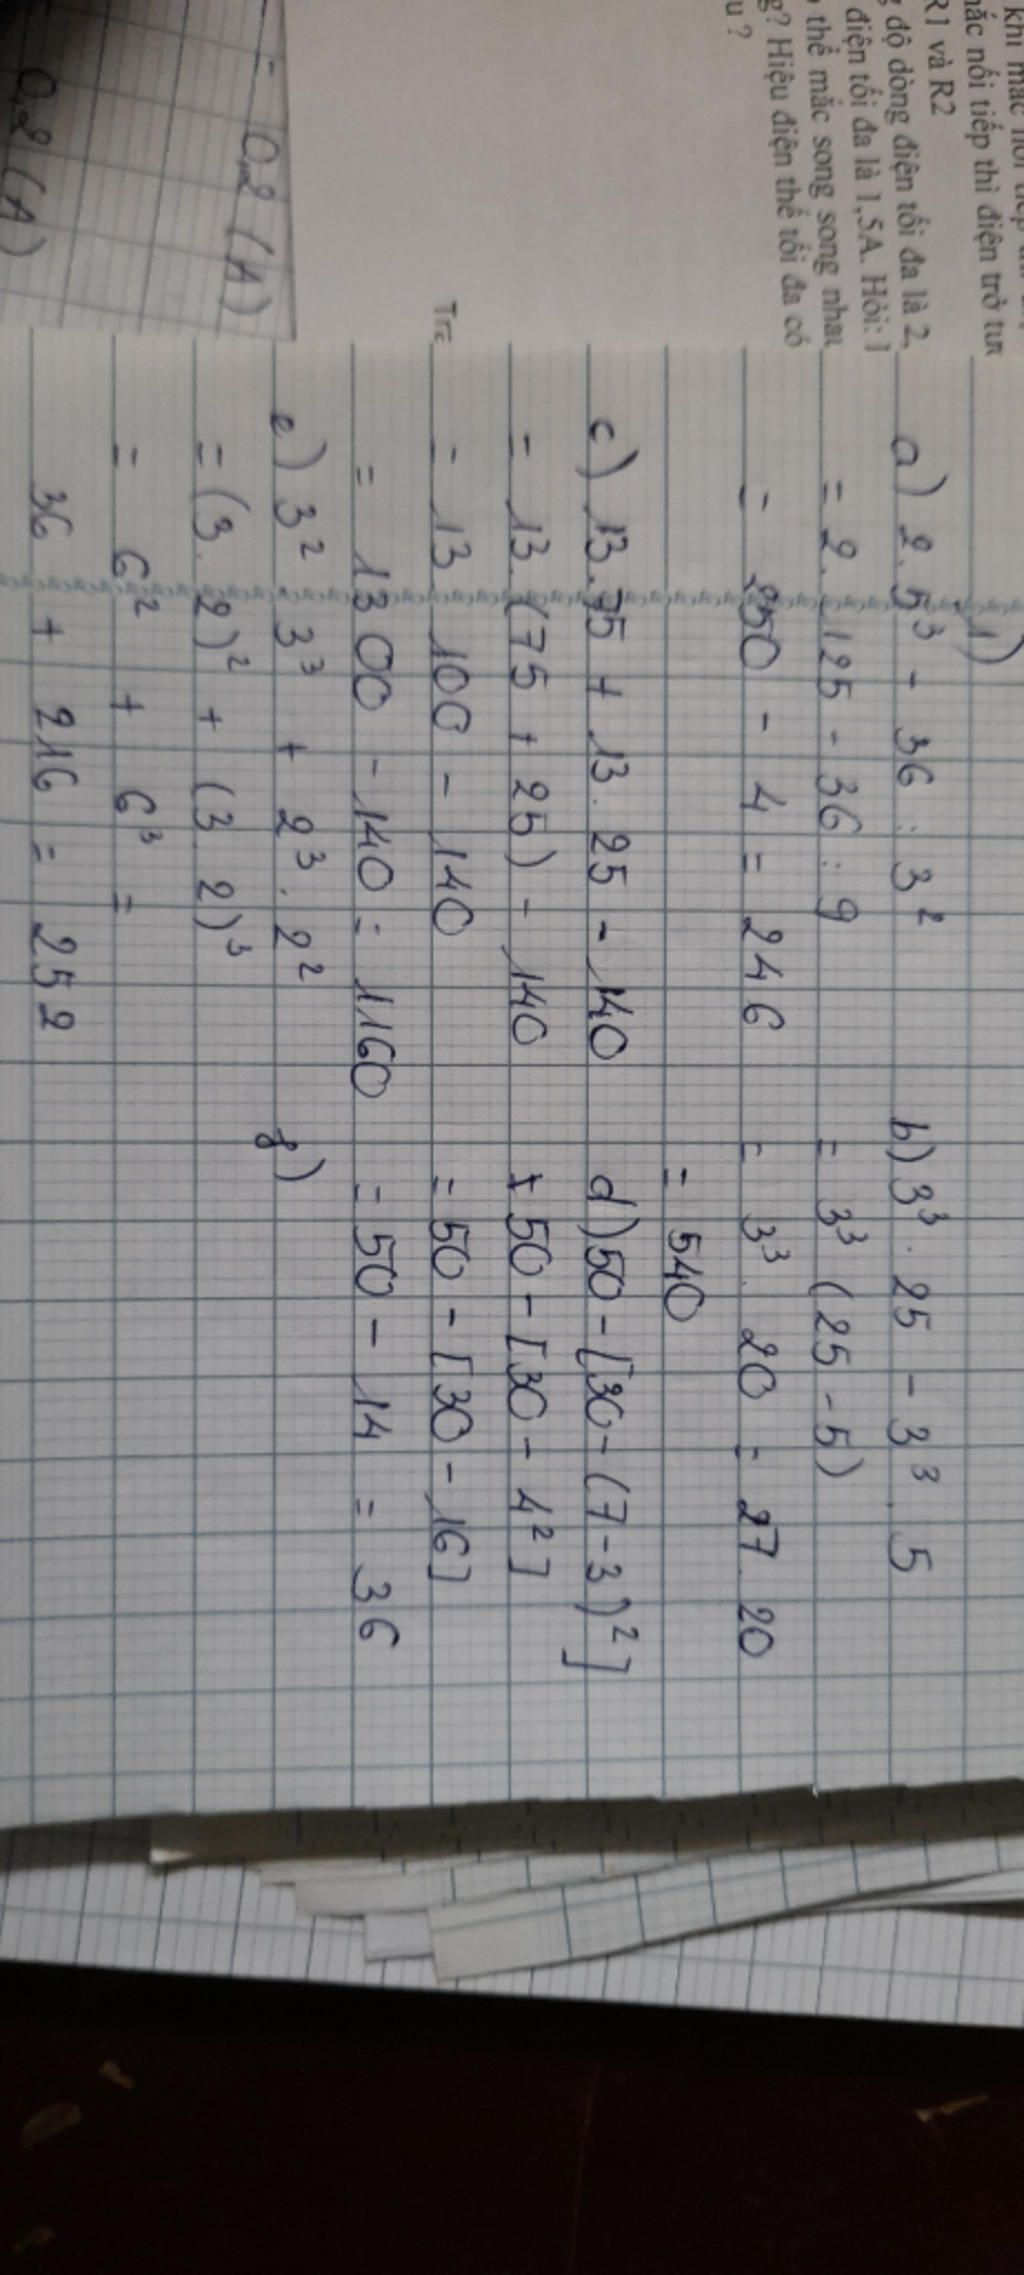 khi mắc nối tiếp
mắc nối tiếp thì điện trở
R1 và R2
độ dòng điện tối đa là 2,
điện tối đa là 1,5A. Hỏi: 1
thể mắc song song nhau
? Hiệu điện thế tối đa có
u ?
- 0,2 (A)
0,2 (A)
1)
a) 2.5³ - 36 : 3²
= 2. 125 - 36 : 9
= 250 - 4 = 246
b) 3³ . 25 - 3³ . 5
= 3³ (25 - 5)
= 3³. 20 = 27. 20
= 540
c) 13.75 + 13. 25 - 140
= 13. (75 + 25) - 140
= 13 . 100 - 140
= 1300 - 140 = 1160
d) 50 - [30 - (7 - 3)²]
= 50 - [30 - 4²]
= 50 - [30 - 16]
= 50 - 14 = 36
e) 3² . 3³ + 2³ . 2²
= (3. 2)² + (3. 2)³
= 6² + 6³ =
36 + 216 = 252
f)